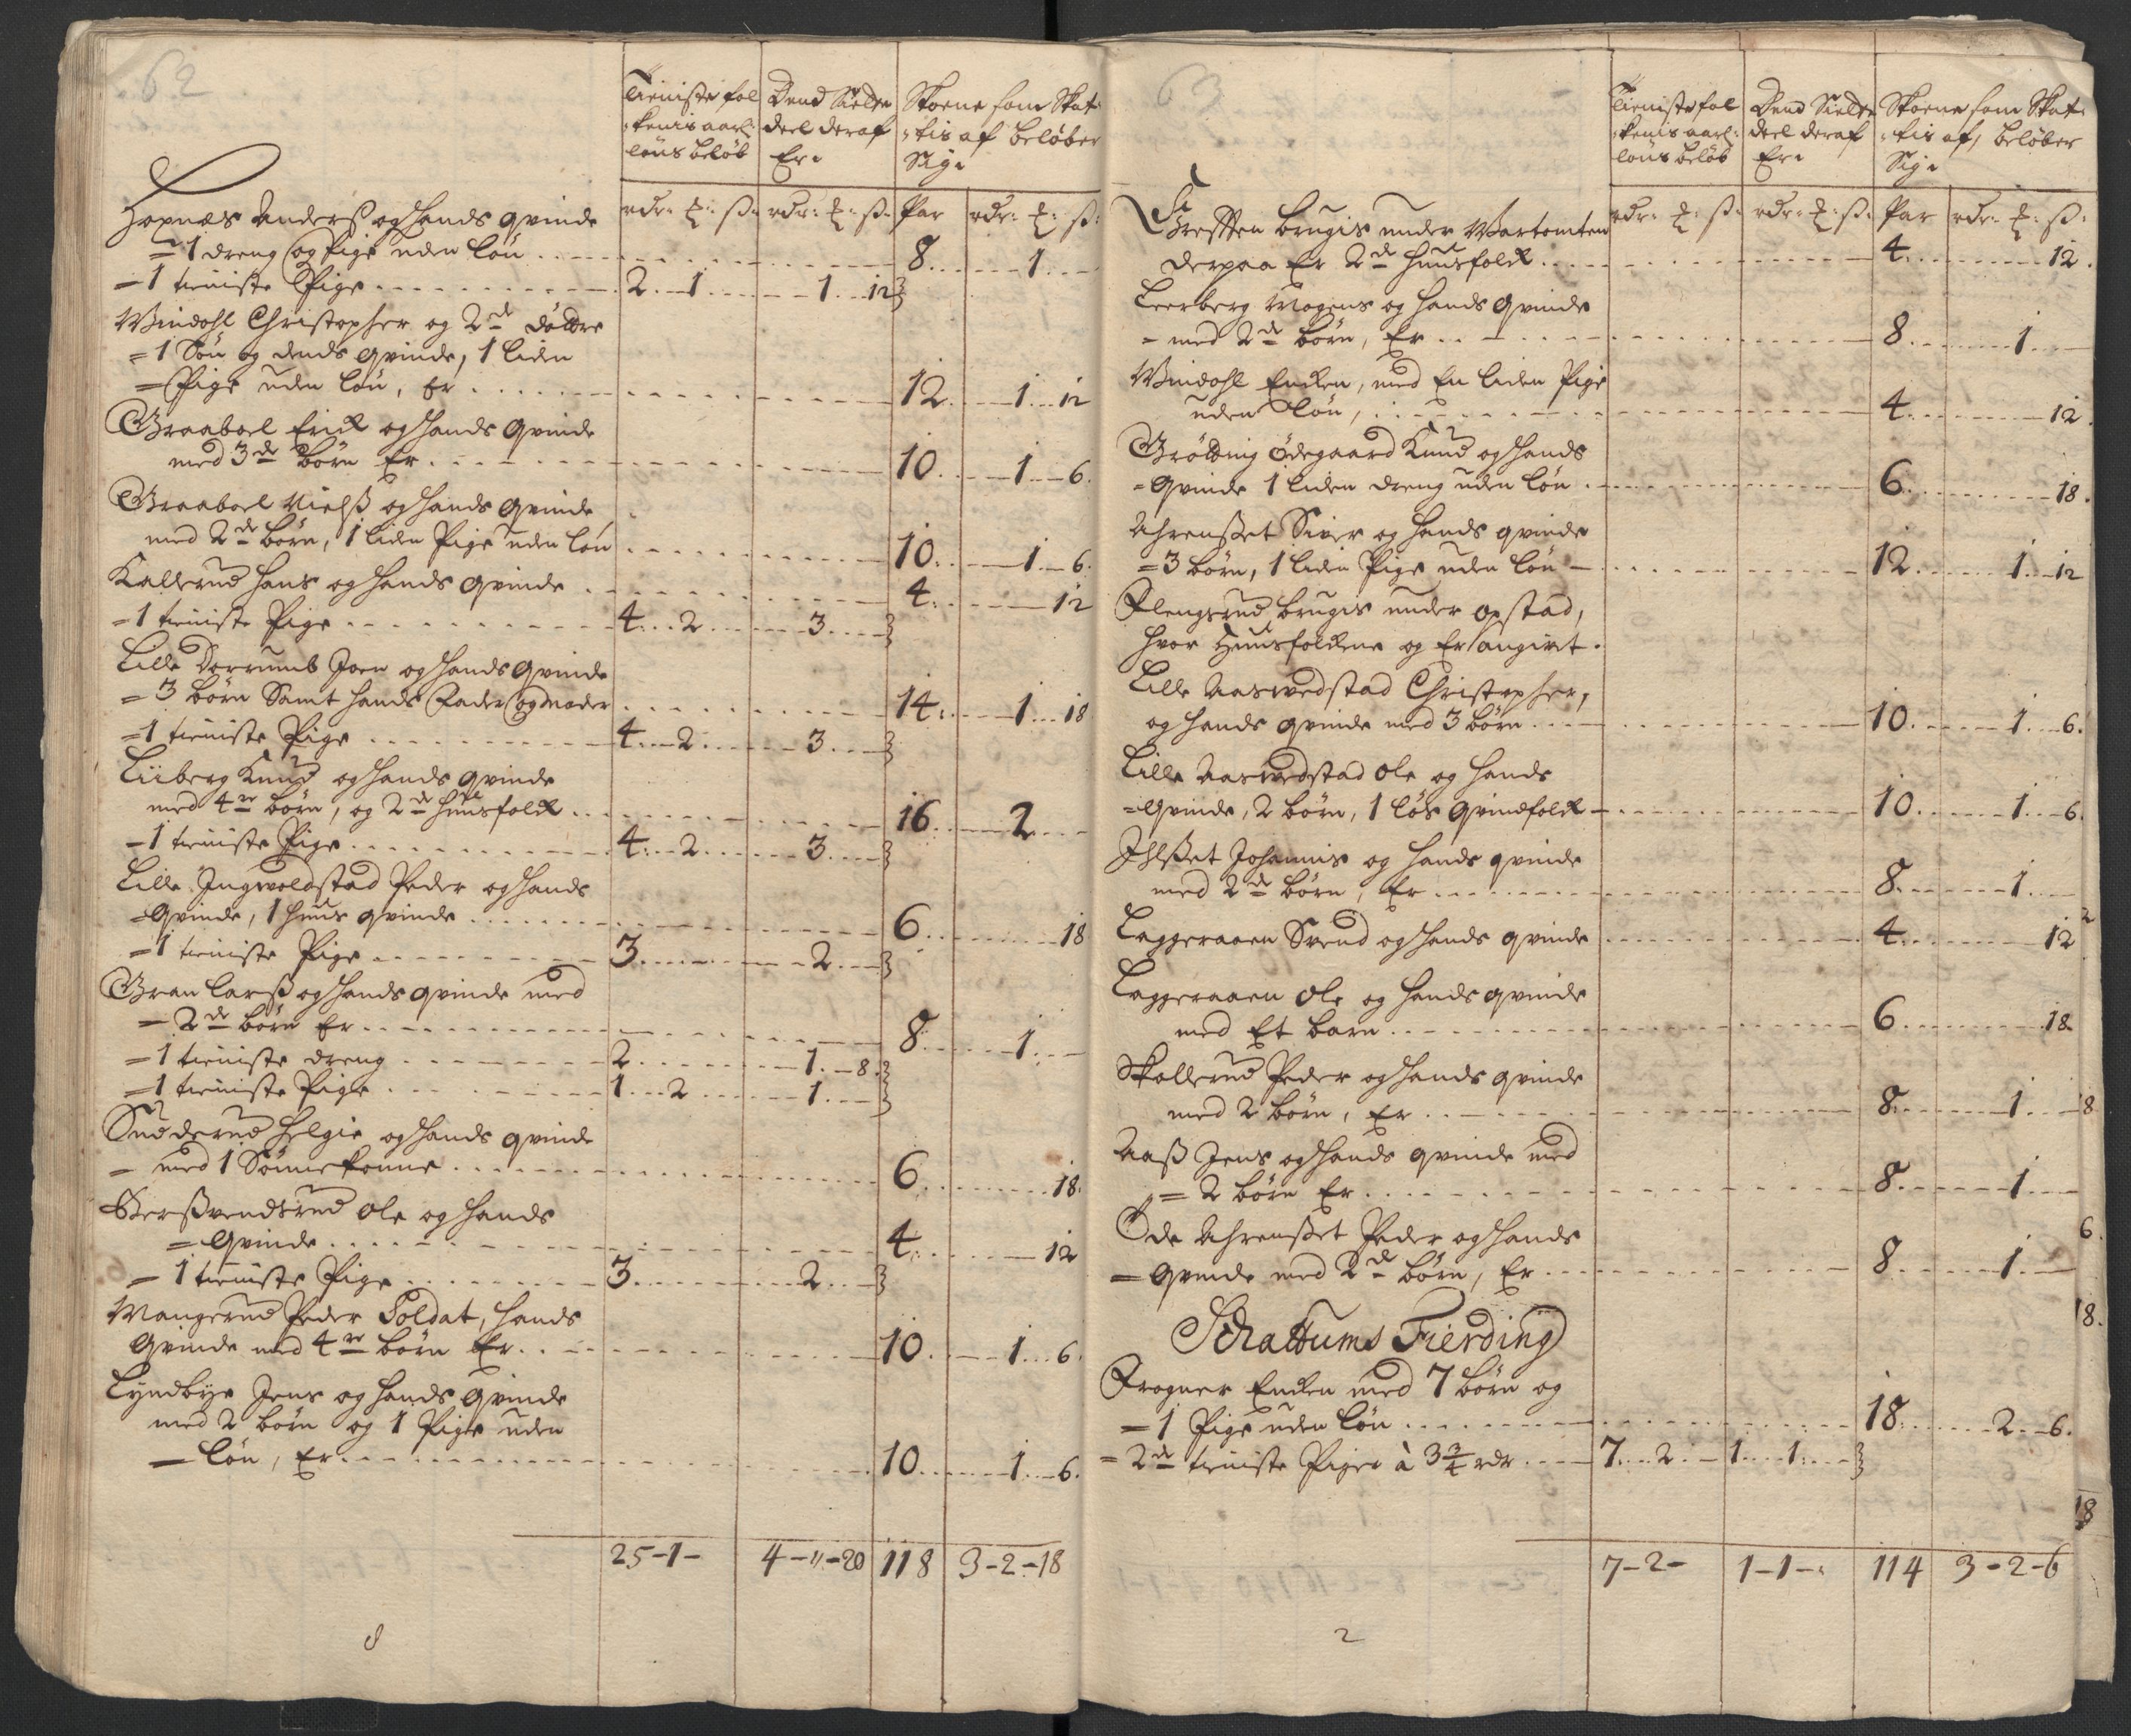 62
Tieniste fol
kenis aarl:
løns beløb
Dend Siette
deel deraf
Er
Skoene som Skat
tis af beløber
Sig
rdr: ß: rdr: ß: Par rdr: ß:
Hopnæs Anderß og hands qvinde
= 1 dreng og Pige uden løn 8 1
- 1 tieniste Pige 2 1 1 12
Windahl Christopher og 2de døttre
= 1 Søn og dends qvinde, 1 liden
= Pige uden løn, Er 12 1 12
Graaboel Erick og hands qvinde
med 3de børn Er 10 1 6
Graaboel Nielß og hands qvinde
med 2de børn, 1 liden Pige uden løn 10 1 6
Kallerud Hans og hands qvinde 4 12
= 1 tieniste Pige 4 2 3
Lille Dorrumb Joen og hands qvinde
= 3 børn Samt hands Fader og moder 14 1 18
= 1 tieniste Pige 4 2 3
Liiberg Knud og hands qvinde
med 4re børn, og 2de huusfolck 16 2
- 1 tieniste Pige 4 2 3
Lille Ingwoldstad Peder og hands
= Qvinde, 1 huus qvinde 6 18
= 1 tieniste Pige 3 2
Gran Larß og hands qvinde med
= 2de børn Er 8 1
= 1 tieniste dreng 2 1 8
= 1 tieniste Pige 1 2 1
Sudderud Helgie og hands qvinde
= med 1 Sønnekonne 6 18
Ole og hands
= Qvinde 4 12
= 1 tieniste Pige 3 2
Mangerud Peder Soldat, hands
Qvinde med 4re børn Er 10 1 6
Lyndbye Jens og hands qvinde
med 2 børn og 1 Pige uden
= løn, Er 10 1 6
25-1- 4-"-20 118 3-2-18
8
63
Tieniste fol
kenis aarl:
løns beløb
Dend Siette
deel deraf
Er
Skoene som Skat
tis af, beløber
Sig
rdr: ß: rdr: ß: Par rdr: ß:
Greffen brugis under Wartomten
derpaa Er 2de huusfolck 4 12
Leerberg Mogens og hands qvinde
= med 2de børn, Er 8 1
Windahl Encken, med En liden Pige
uden løn, 4 12
Grøtting Ødegaard Knud og hands
= Qvinde 1 liden dreng uden løn 6 18
Ahrenßet Siver og hands qvinde
= 3 børn, 1 liden Pige uden løn 12 1 12
Flengsrud brugis under opstad,
hvor Huusfolckene og Er angivet.
Lille Aaswedstad Christopher,
og hands qvinde med 3 børn 10 1 6
Lille Aaswedstad Ole og hands
= Qvinde, 2 børn, 1 løs Qvindfolck 10 1 6
Johannis og hands qvinde
med 2de børn, Er 8 1
Laggeraaen Svend og hands qvinde 4 12
Laggeraaen Ole og hands qvinde
med Et barn 6 18
Skollerud Peder og hands qvinde
med 2 børn, Er 8 1
Aaß Jens og hands qvinde med
= 2 børn Er 8 1
Øde Ahrenßet Peder og hands
= Qvinde med 2de børn, Er 8 1
Schattums Fierding
Frogner Encken med 7 børn og
= 1 Pige uden løn 18 2 6
= 2de tieniste Piger à 3 3/4 rdr 7 2 1 1
7-2- 1-1- 114 3-2-6
2